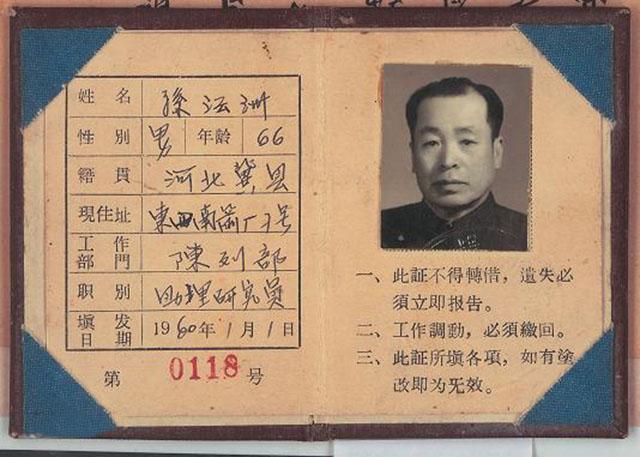 姓名 孫沄洲
性別 男 年龄 66
籍貫 河北冀县
現住址 東西南箭厂3号
工作部門 陳列部
职別 助理研究員
填发日期 1960年1月1日
第 0118 号
一、此証不得轉借，遺失必
須立即报告。
二、工作調動，必須繳回。
三、此証所填各項，如有塗
改即为旡效。